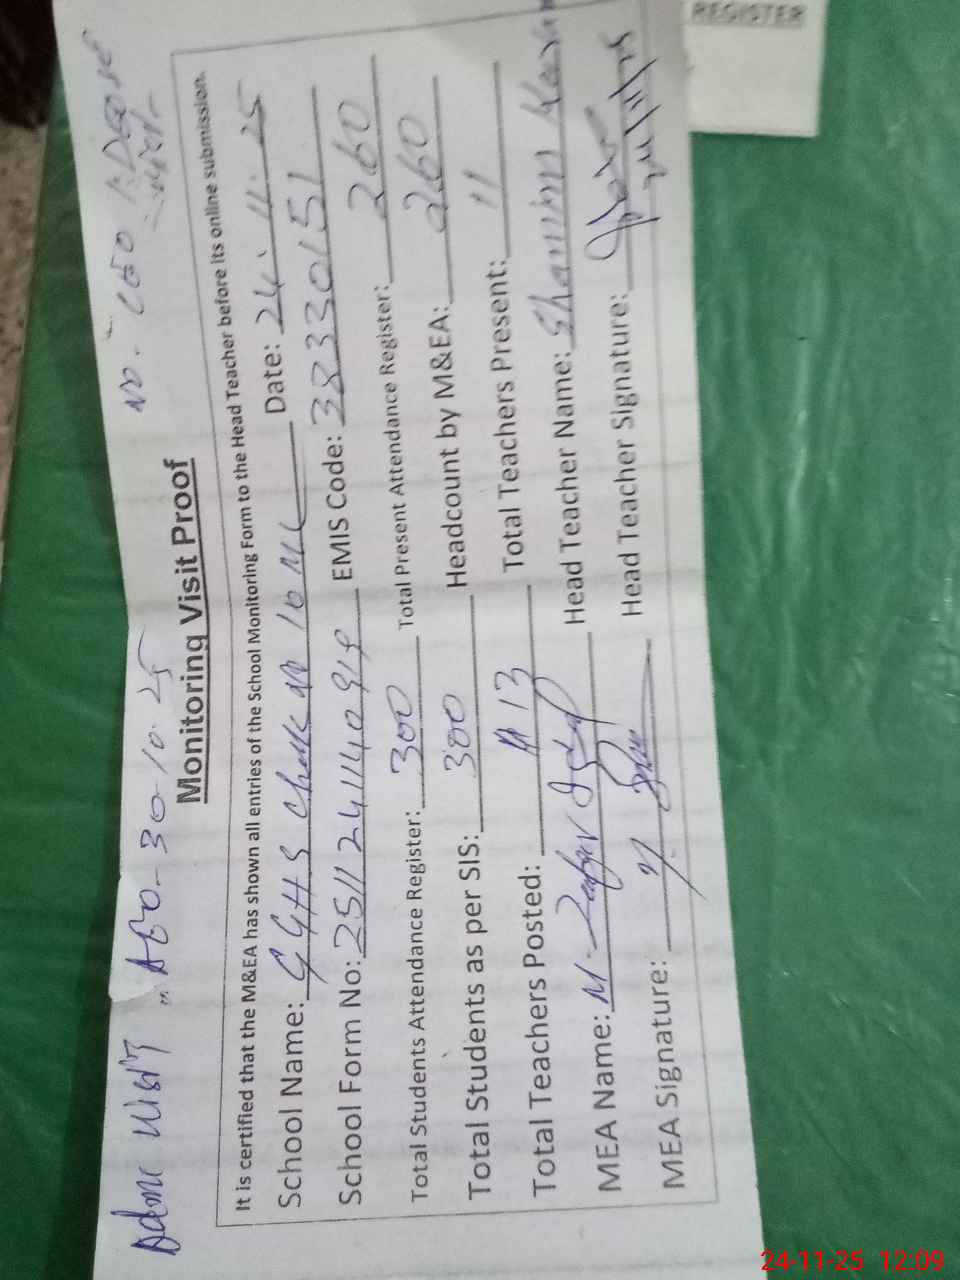 REGISTER
Admn Visit " AEO - 30-10-25 No. CEO / DEO SE
visit
Monitoring Visit Proof
It is certified that the M&EA has shown all entries of the School Monitoring Form to the Head Teacher before its online submission.
School Name: GGHS Chak No 10 ML Date: 24.11.25
School Form No: EMIS Code: 38330151
Total Students Attendance Register: 300 Total Present Attendance Register: 260
Total Students as per SIS: 300 Headcount by M&EA: 260
Total Teachers Posted: 13 Total Teachers Present: 11
MEA Name: M. Zafar Iqbal Head Teacher Name: Shamim
MEA Signature: Head Teacher Signature:
24/11/25
24-11-25 12:09